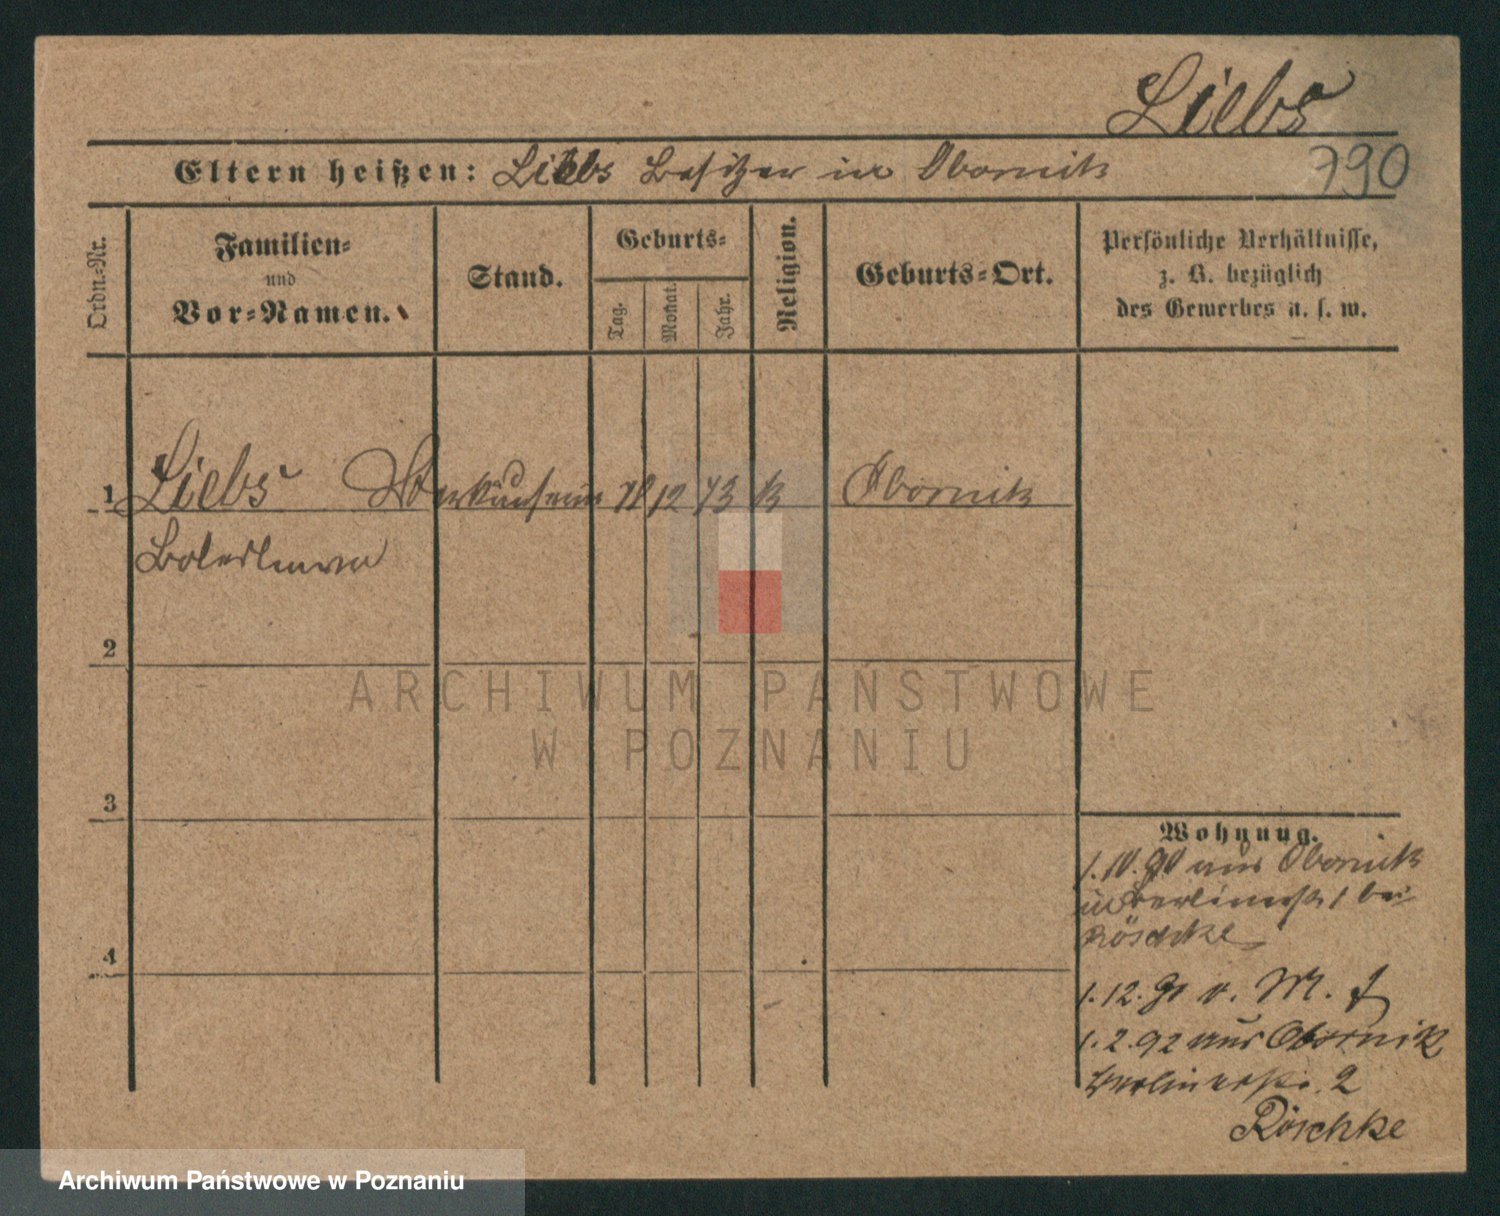 Liebs
Eltern heißen: Liebs Besitzer in Obornik
790
Ordn.-Nr.
Familien-
und
Vor-Namen.
Stand.
Geburts-
Tag.
Monat.
Jahr.
Religion.
Geburts-Ort.
Persönliche Verhältnisse,
z. B. bezüglich
des Gewerbes u. s. w.
1 Liebs Verkäuferin 10 12 73 k Obornik
2
3
4
Wohnung.
1.10.90 aus Obornik
in Berlinerstr 1 bei
Röschke
1.12.91 v. M. f
1.2.92 aus Obornik
Berlinerstr. 2
Röschke
ARCHIWUM PAŃSTWOWE
W POZNANIU
Archiwum Państwowe w Poznaniu